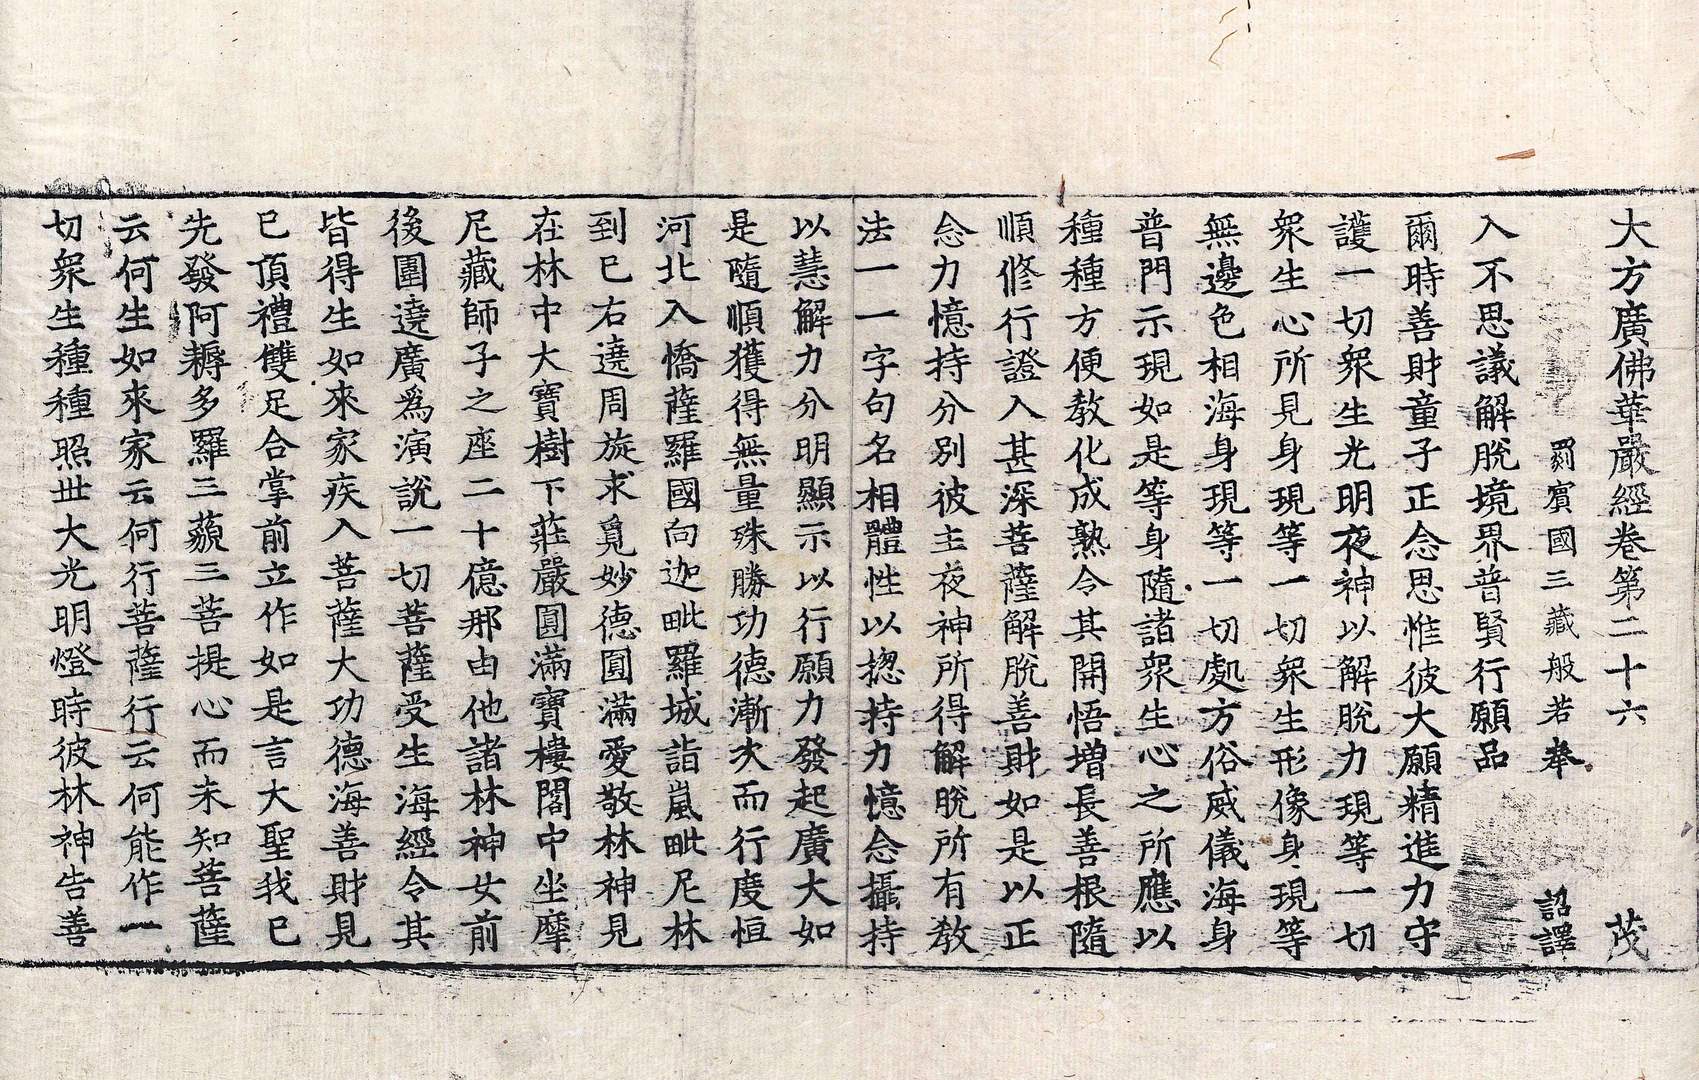 大方廣佛華嚴經卷第二十六　茂
罽賓國三藏般若奉　詔譯
入不思議解脫境界普賢行願品
爾時善財童子正念思惟彼大願精進力守
護一切衆生光明夜神以解脫力現等一切
衆生心所見身現等一切衆生形像身現等
無邊色相海身現等一切處方俗威儀海身
普門示現如是等身隨諸衆生心之所應以
種種方便教化成熟令其開悟增長善根隨
順修行證入甚深菩薩解脫善財如是以正
念力憶持分別彼主夜神所得解脫所有教
法一一字句名相體性以揔持力憶念攝持
以慧解力分明顯示以行願力發起廣大如
是隨順獲得無量殊勝功德漸次而行度恒
河北入憍薩羅國向迦毗羅城詣嵐毗尼林
到已右遶周旋求覓妙德圓滿愛敬林神見
在林中大寶樹下莊嚴圓滿寶樓閣中坐摩
尼藏師子之座二十億那由他諸林神女前
後圍遶廣爲演說一切菩薩受生海經令其
皆得生如來家疾入菩薩大功德海善財見
已頂禮雙足合掌前立作如是言大聖我已
先發阿耨多羅三藐三菩提心而未知菩薩
云何生如來家云何行菩薩行云何能作一
切衆生種種照世大光明燈時彼林神告善